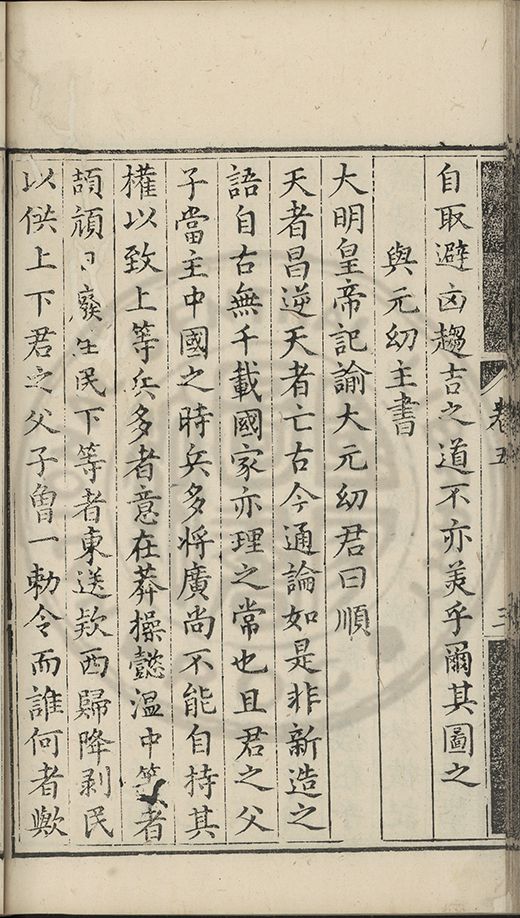 自取避凶趨吉之道不亦美乎爾其圖之
與元幼主書
大明皇帝記諭大元幼君曰順
天者昌逆天者亡古今通論如是非新造之
語自古無千載國家亦理之常也且君之父
子當主中國之時兵多將廣尚不能自持其
權以致上等兵多者意在莽操懿溫中等者
頡頏日廢生民下等者東送欵西歸降剥民
以供上下君之父子曾一勅令而誰何者歟
卷五
三